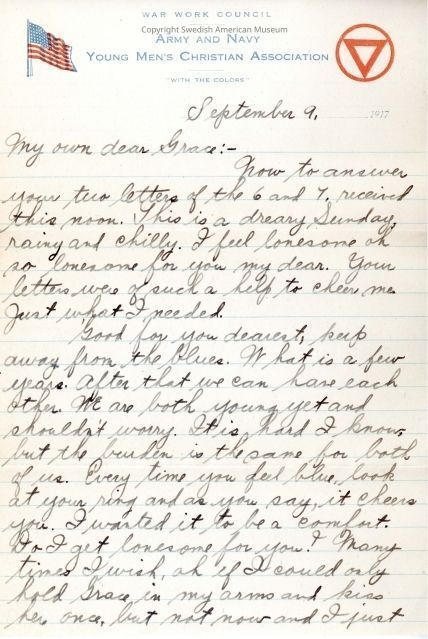 WAR WORK COUNCIL
Copyright Swedish American Museum
ARMY AND NAVY
YOUNG MEN'S CHRISTIAN ASSOCIATION
"WITH THE COLORS"
September 9, 1917
My own dear Grace:-
Now to answer
your two letters of the 6 and 7, received
this noon. This is a dreary Sunday,
rainy and chilly. I feel lonesome oh
so lonesome for you my dear. Your
letters were of such a help to cheer me
Just what I needed.
Good for you dearest, keep
away from the blues. What is a few
years. After that we can have each
other. We are both young yet and
shouldn't worry. It is hard I know,
but the burden is the same for both
of us. Every time you feel blue, look
at your ring and as you say, it cheers
you. I wanted it to be a comfort.
Do I get lonesome for you? Many
times I wish, oh if I could only
hold Grace in my arms and kiss
her once, but not now and I just